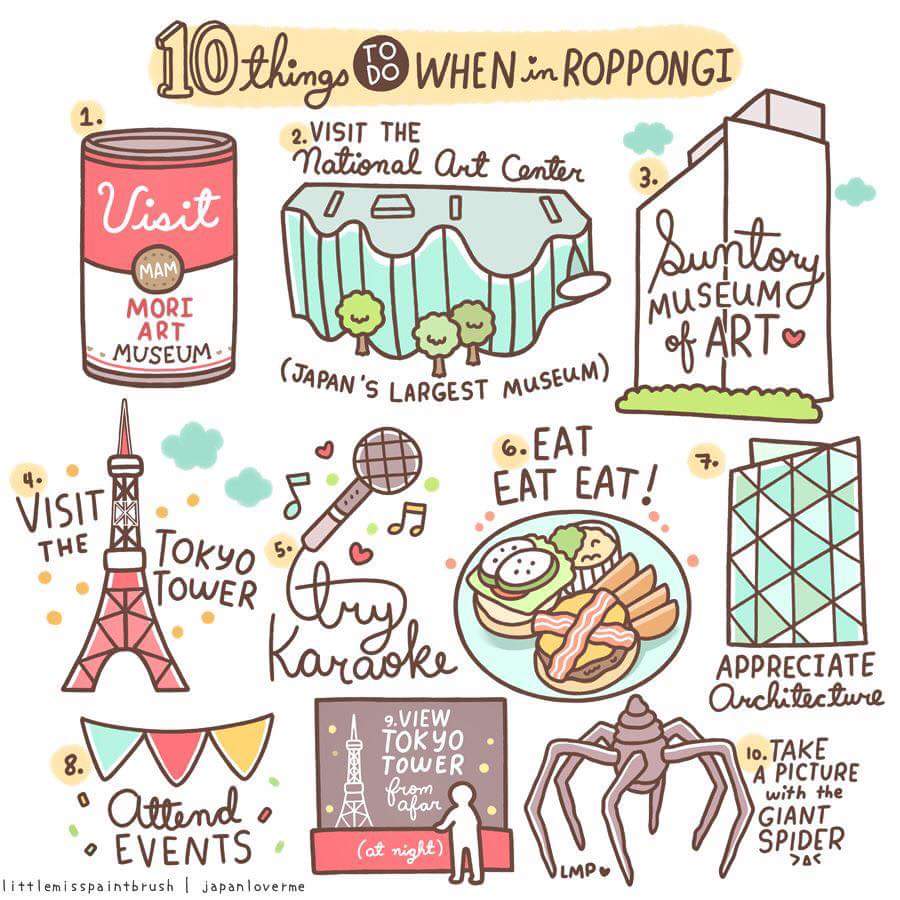 10 things TO DO WHEN in ROPPONGI
1.
Visit
MAM
MORI
ART
MUSEUM
2. VISIT THE
National Art Center
(JAPAN'S LARGEST MUSEUM)
3.
Suntory
MUSEUM
of ART
4.
VISIT
THE
TOKYO
TOWER
5.
try
Karaoke
6. EAT
EAT EAT!
7.
APPRECIATE
Architecture
8.
Attend
EVENTS
9. VIEW
TOKYO
TOWER
from
afar
(at night)
10. TAKE
A PICTURE
with the
GIANT
SPIDER
>Δ<
LMP
littlemisspaintbrush | japanloverme